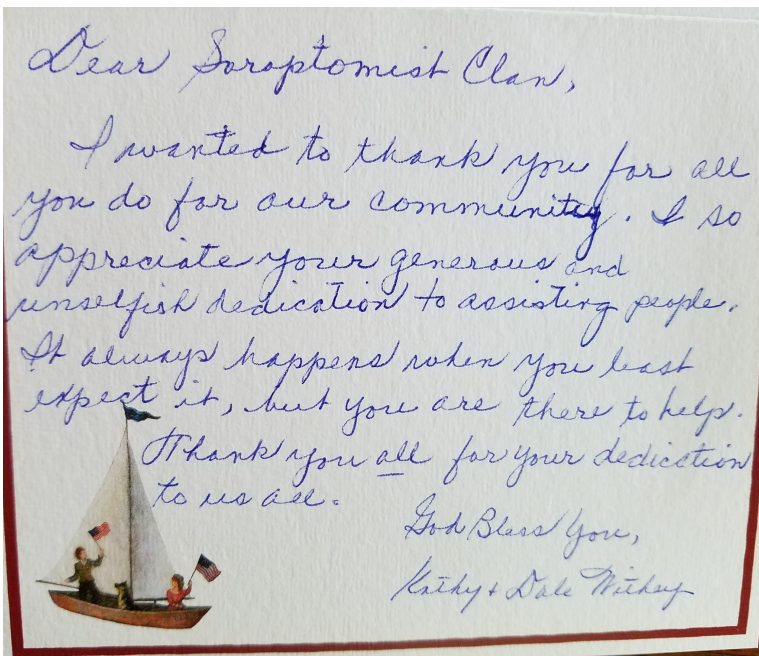 Dear Soroptomist Clan,
I wanted to thank you for all
you do for our community. I so
appreciate your generous and
unselfish dedication to assisting people.
It always happens when you least
expect it, but you are there to help.
Thank you all for your dedication
to us all.
God Bless You,
Kathy & Dale